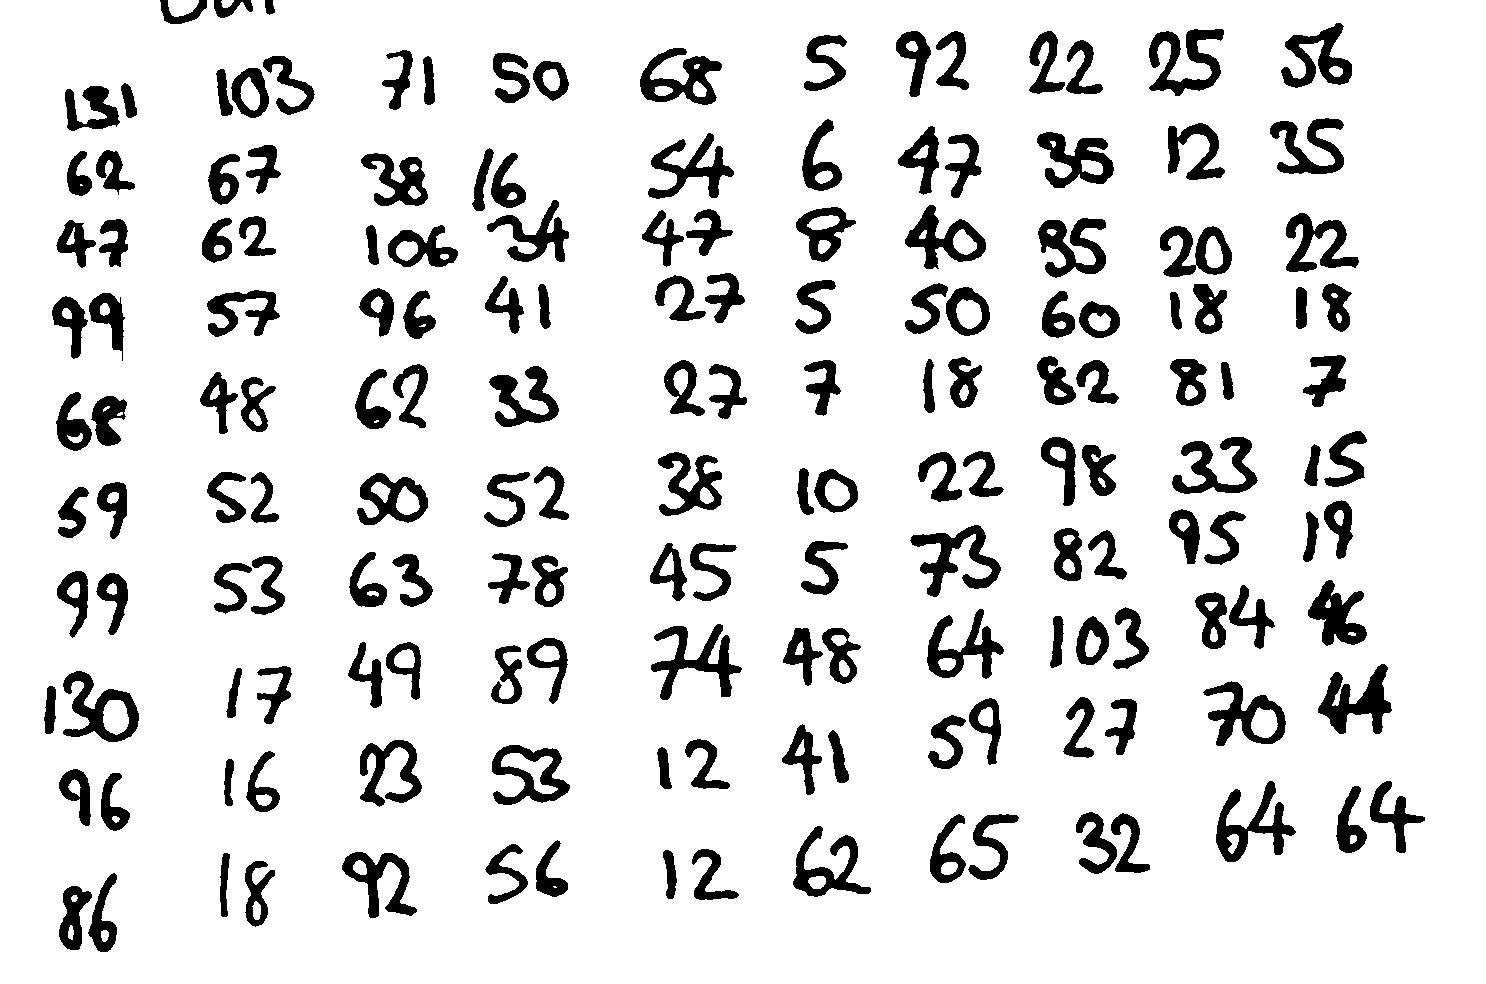 131 103 71 50 68 5 92 22 25 56
62 67 38 16 54 6 47 35 12 35
47 62 106 34 47 8 40 35 20 22
99 57 96 41 27 5 50 60 18 18
68 48 62 33 27 7 18 82 81 7
59 52 50 52 38 10 22 98 33 15
99 53 63 78 45 5 73 82 95 19
130 17 49 89 74 48 64 103 84 46
96 16 23 53 12 41 59 27 70 44
86 18 92 56 12 62 65 32 64 64